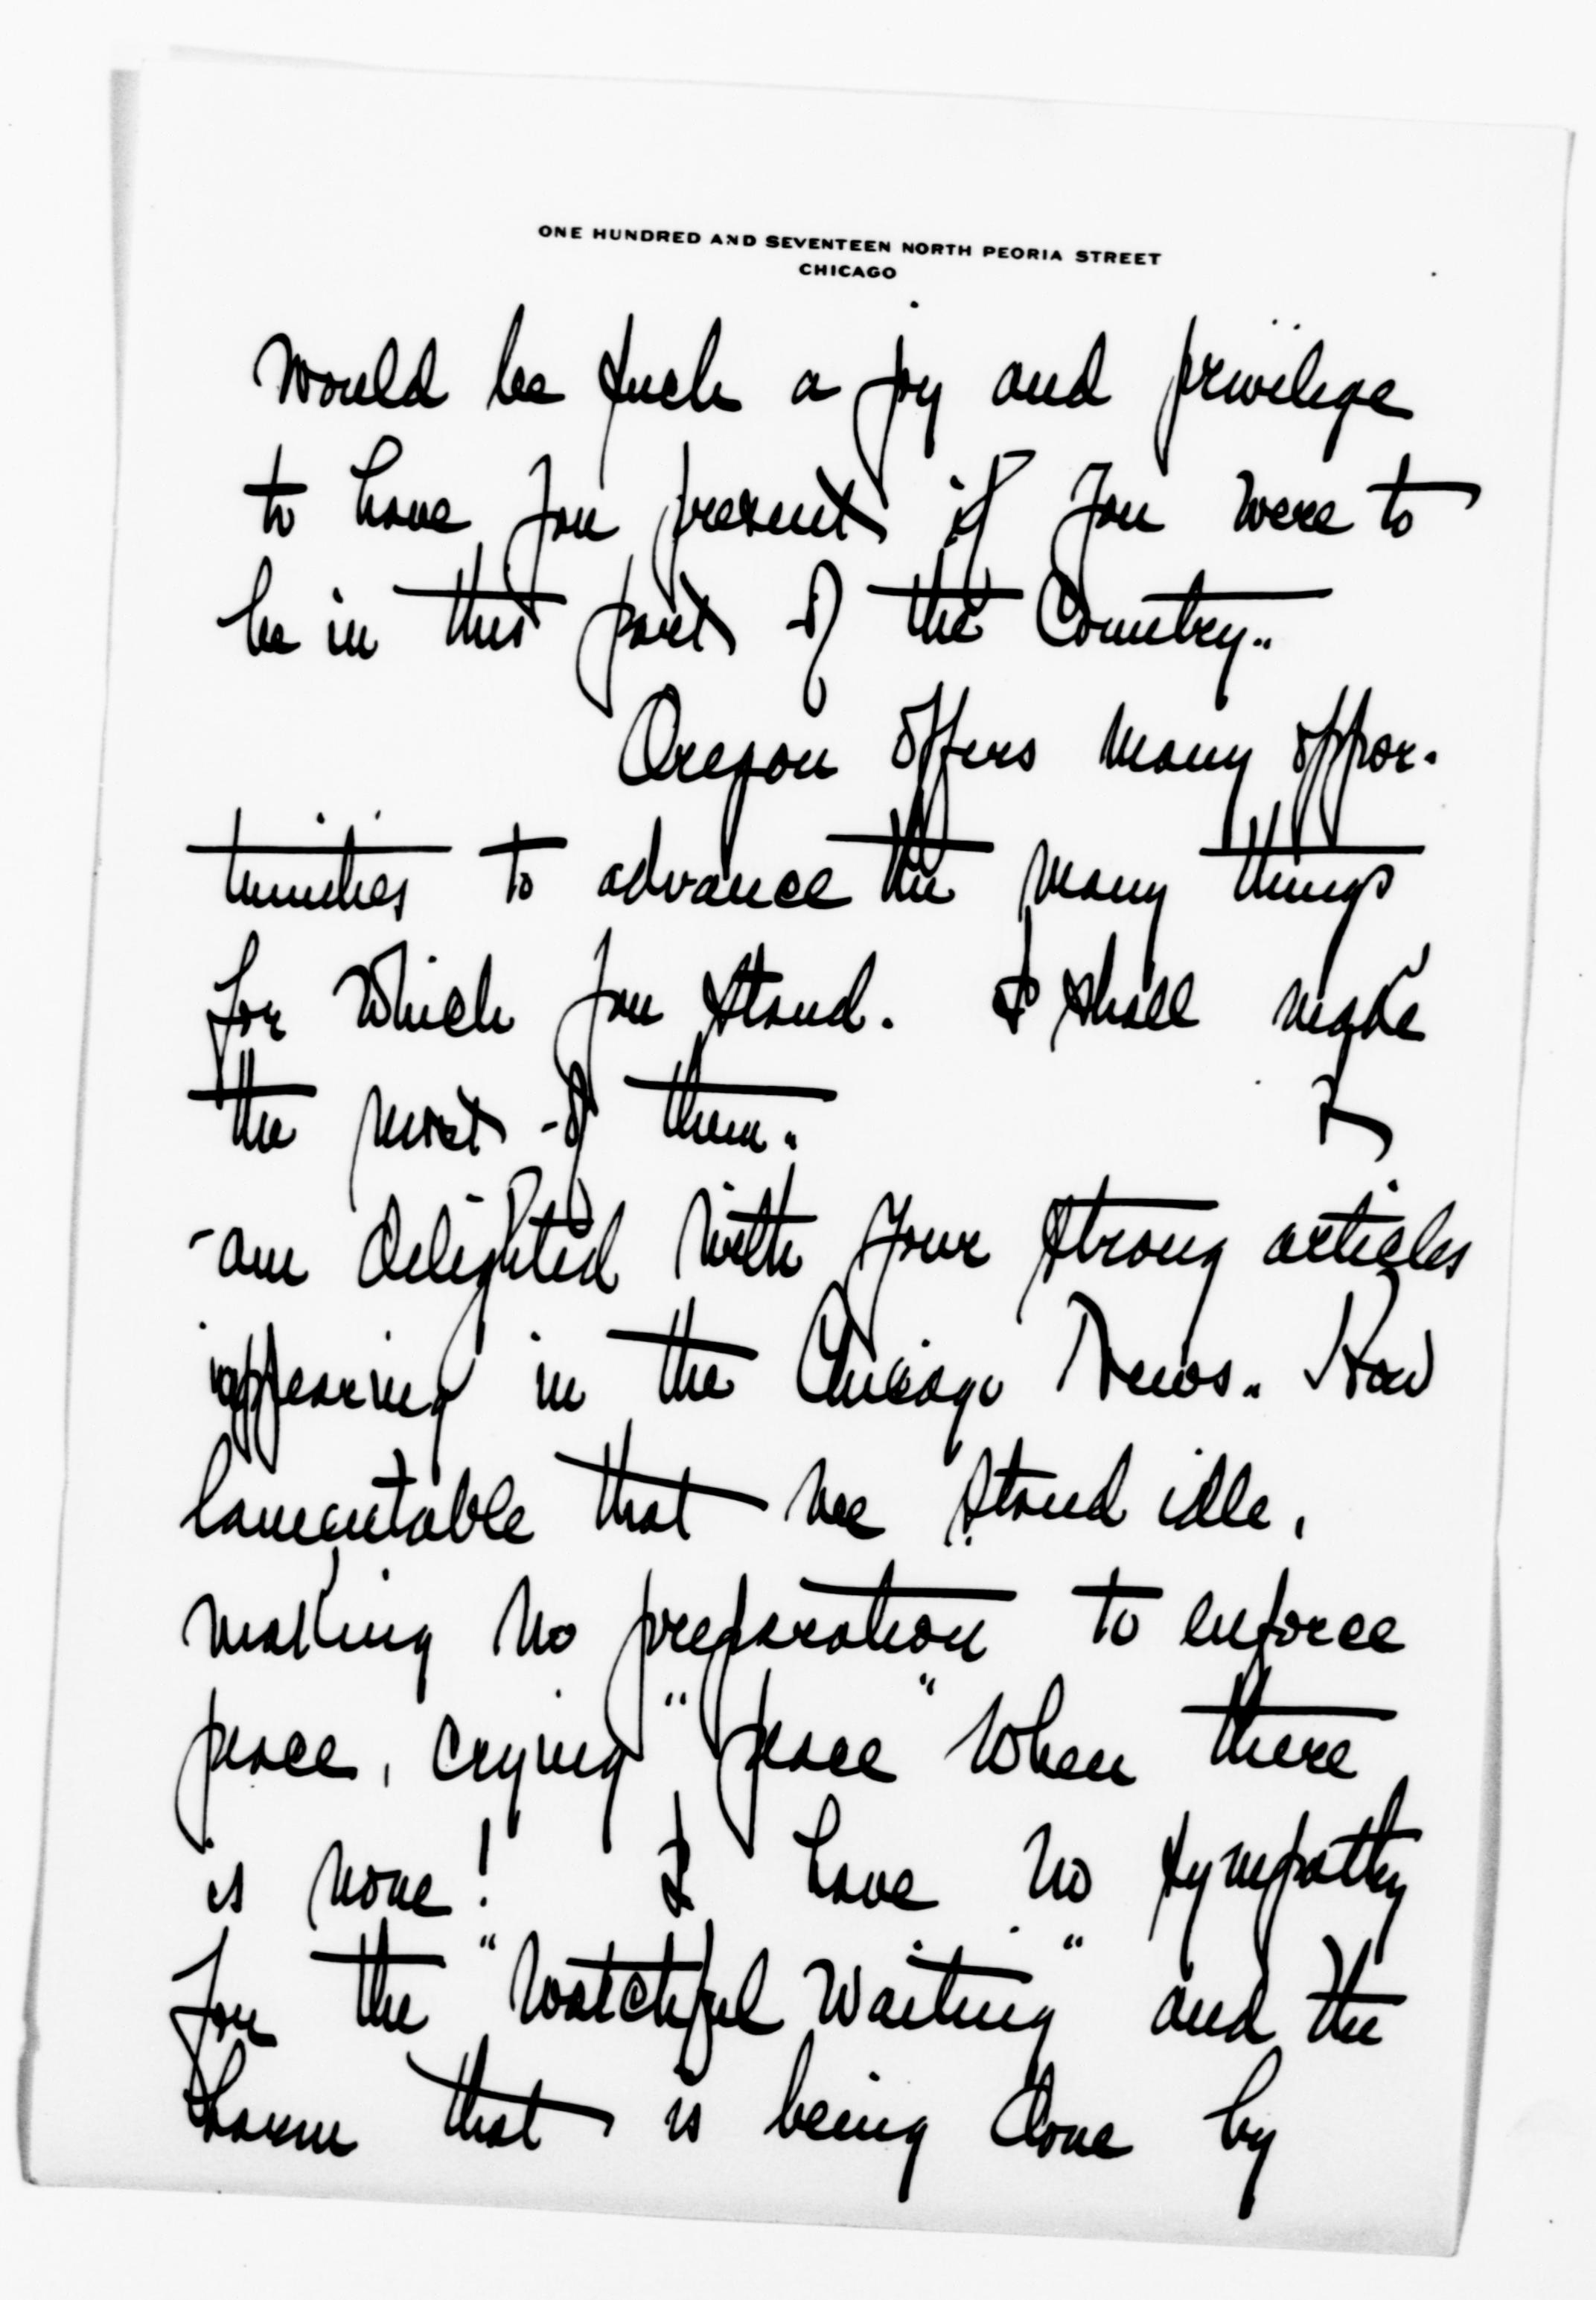 ONE HUNDRED AND SEVENTEEN NORTH PEORIA STREET
CHICAGO
would be such a joy and privilege
to have you present if you were to
be in this part of the Country.
Oregon offers many oppor-
tunities to advance the many things
for which you stand. I shall make
the most of them. I
am delighted with your strong articles
appearing in the Chicago News. How
lamentable that we stand idle,
making no preparation to enforce
peace, crying "peace" when there
is none! I have no sympathy
for the "watchful waiting" and the
harm that is being done by